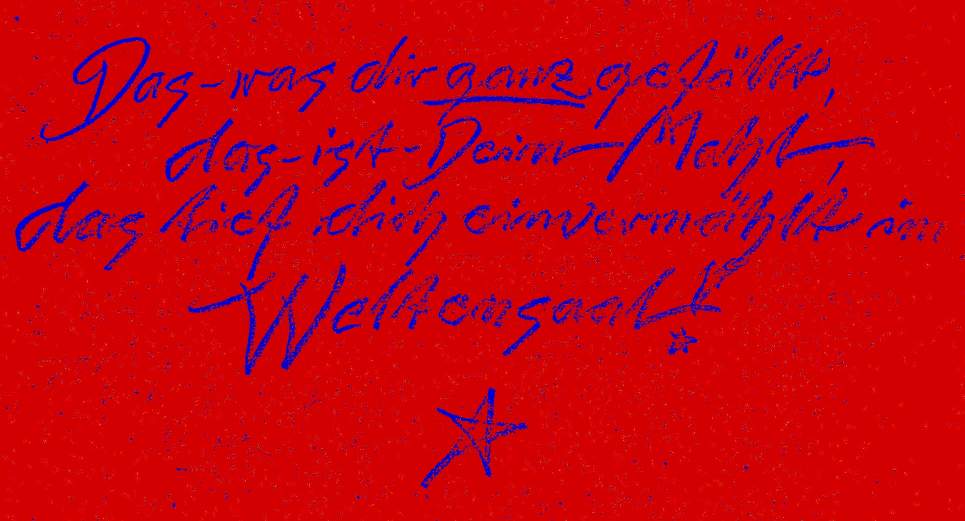 Das-was dir ganz gefällt,
das-ist-Dein-Mahl,
das tief dich einvermählt im
Weltensaal!